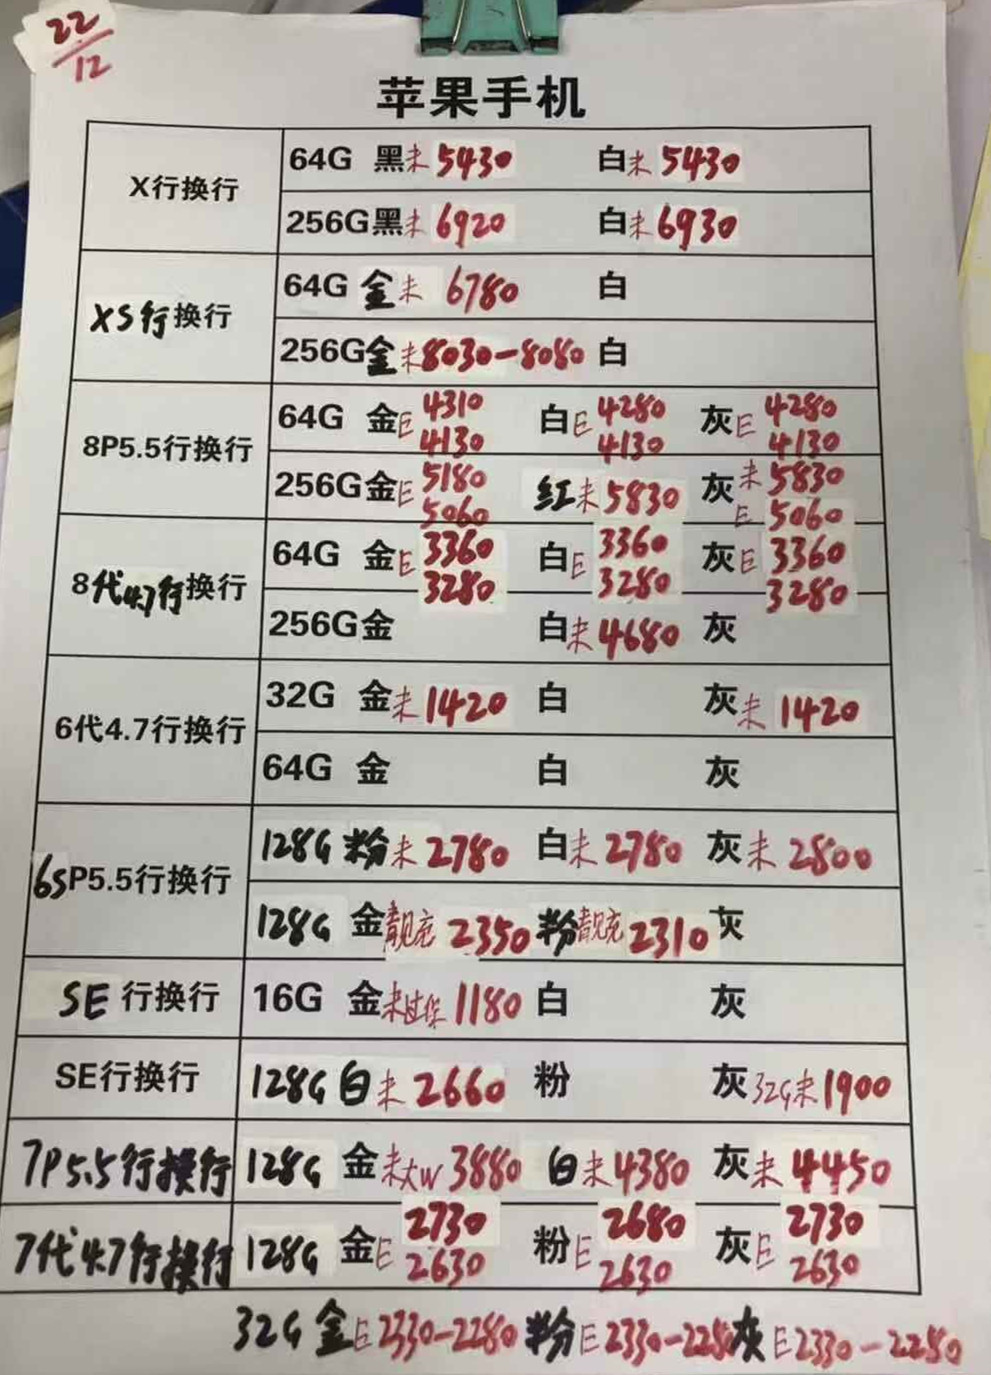 22/12
苹果手机
X行换行
64G 黑未5430 白未5430
256G黑未6920 白未6930
XS行换行
64G 金未 6780 白
256G金未8030-8080 白
8P5.5行换行
64G 金E 4310 4130 白E 4280 4130 灰E 4280 4130
256G金E 5180 5060 红未5830 灰未5830 E 5060
8代4.7行换行
64G 金E 3360 3280 白E 3360 3280 灰E 3360 3280
256G金 白未4680 灰
6代4.7行换行
32G 金未1420 白 灰未 1420
64G 金 白 灰
6SP5.5行换行
128G 粉未2780 白未2780 灰未 2800
128G 金靓充 2350 粉靓充 2310 灰
SE 行换行
16G 金未过保 1180 白 灰
SE行换行
128G 白未2660 粉 灰 32G未1900
7P5.5行换行
128G 金未大W 3880 白未4380 灰未 4450
7代4.7行换行
128G 金E 2730 2630 粉E 2680 2630 灰E 2730 2630
32G 金E2330-2280 粉E2330-2280 灰E2330-2250